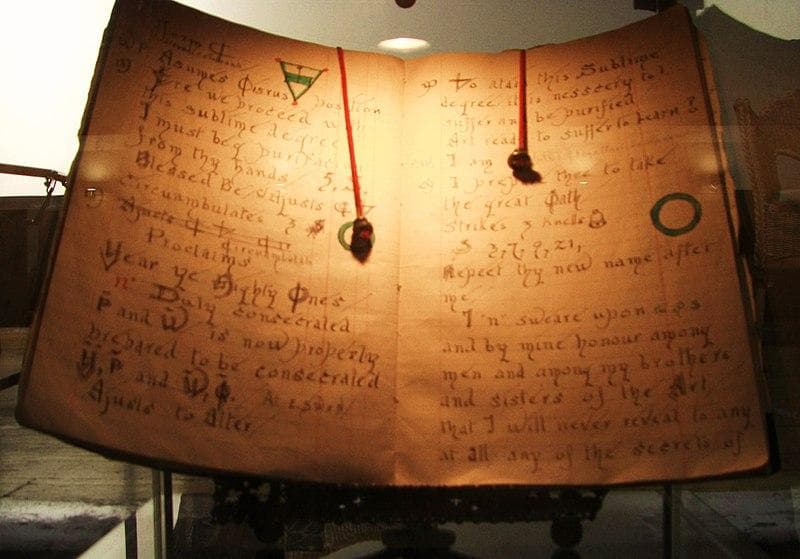 Asumes Osrus position
Ere we proceed with
this sublime degree
I must beg purifica
from thy hands
Blessed Be, Adjusts
Circumambulates 3
Adjusts
circumambulates
Proclaims
Hear ye Mighty Ones
"n" Duly consecrated
P and W is now properly
prepared to be consecrated
H, P and W, Q.
Ajusts to Alter.
To atain this Sublime
degree it is nesscery to
suffer and be purified
Art ready to suffer to Learn?
I am
I prepare thee to take
the great Oath
Strikes 3 Knells
3, 7, 9, 21,
Repect thy new name after
me.
I "n" sweare upon
and by mine honour among
men and among my brothers
and sisters of the Art
that I will never reveal to any
at all any of the secrets of